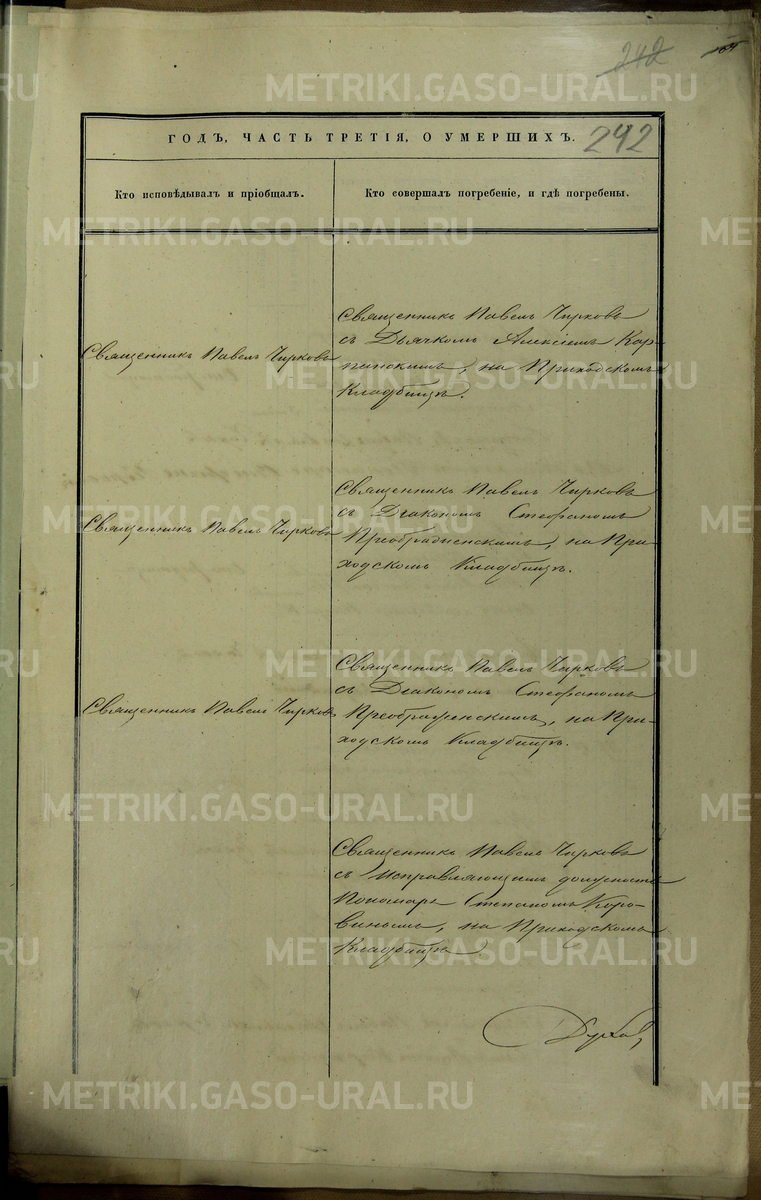 242
242
ГОДЪ, ЧАСТЬ ТРЕТІЯ, О УМЕРШИХЪ.
Кто исповѣдывалъ и пріобщалъ.
Кто совершалъ погребеніе, и гдѣ погребены.
Священникъ Павелъ Чирковъ
Священникъ Павелъ Чирковъ
съ Дьячкомъ Алексіемъ Кар-
пинскимъ, на Приходскомъ
Кладбищѣ.
Священникъ Павелъ Чирковъ
Священникъ Павелъ Чирковъ
съ Діакономъ Стефаномъ
Преображенскимъ, на При-
ходскомъ Кладбищѣ.
Священникъ Павелъ Чирковъ
Священникъ Павелъ Чирковъ
съ Діакономъ Стефаномъ
Преображенскимъ, на При-
ходскомъ Кладбищѣ.
Священникъ Павелъ Чирковъ
съ Исправляющимъ должность
Пономаря Степаномъ Коро-
винымъ, на Приходскомъ
Кладбищѣ.
METRIKI.GASO-URAL.RU